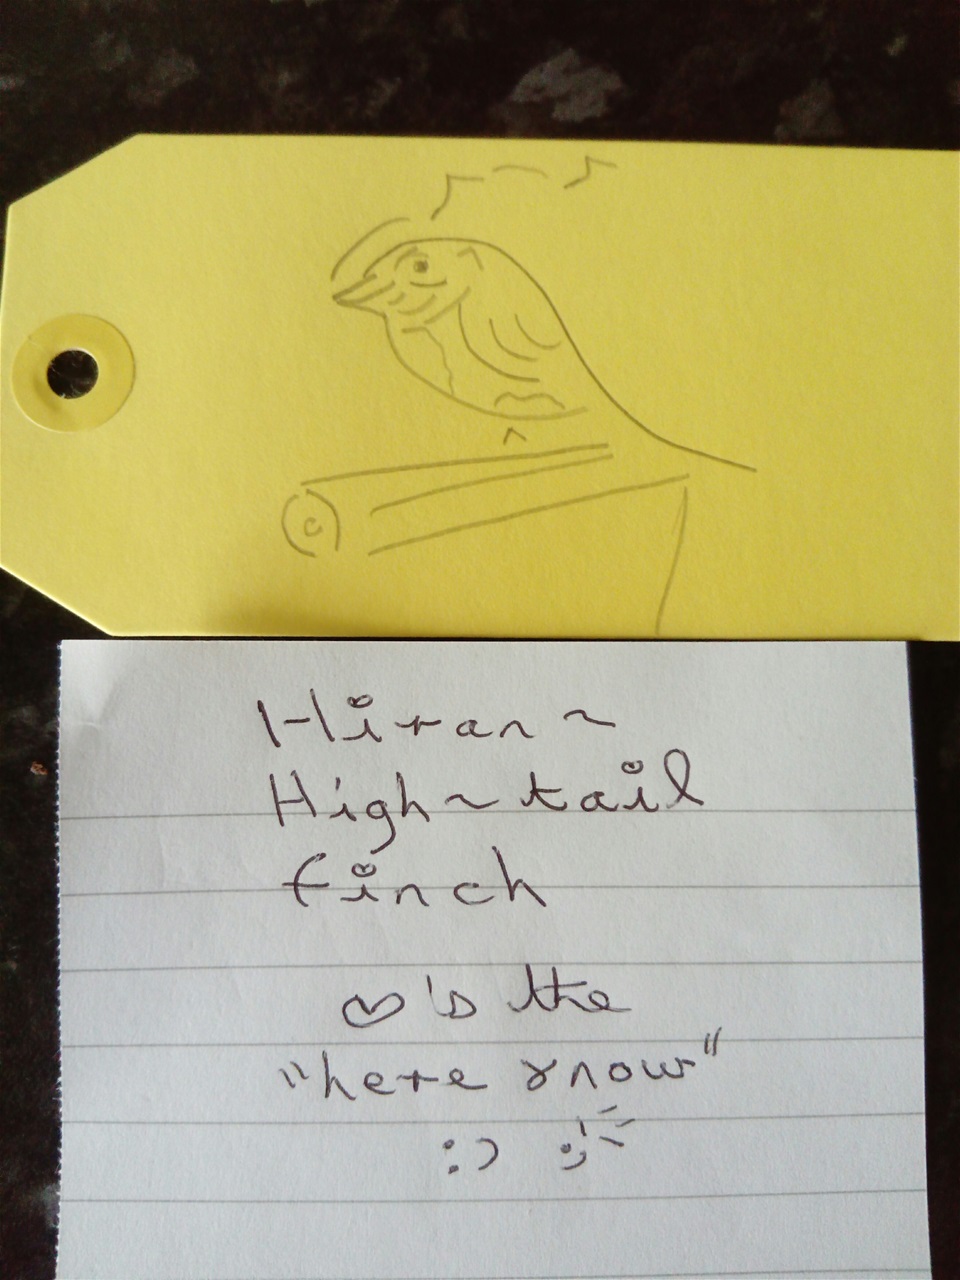 Hiran ~
High ~ tail
finch
♡'s the
"here & now"
:)